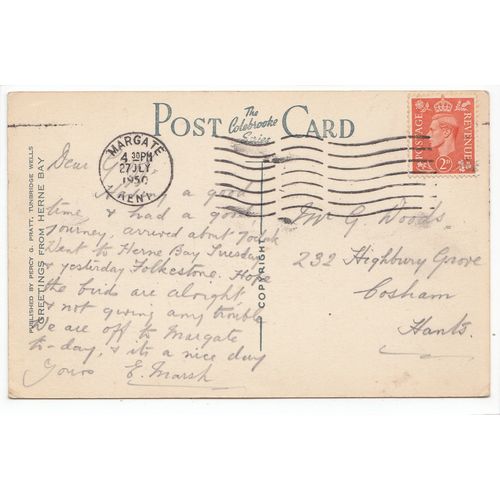 POST CARD
The
Colebrooke
Series
MARGATE
4 30PM
27 JLY
1950
KENT
POSTAGE
REVENUE
2D
PUBLISHED BY PERCY G. PRATT, TUNBRIDGE WELLS
GREETINGS FROM HERNE BAY.
COPYRIGHT
Dear
a good
time, & had a good
journey, arrived about 7
Went to Herne Bay Tuesday
& yesterday Folkestone. Hope
the birds are alright
& not giving any trouble
We are off to Margate
to-day, & its a nice day
Yours E. Marsh
Mr G Woods.
232 Highbury Grove
Cosham
Hants.